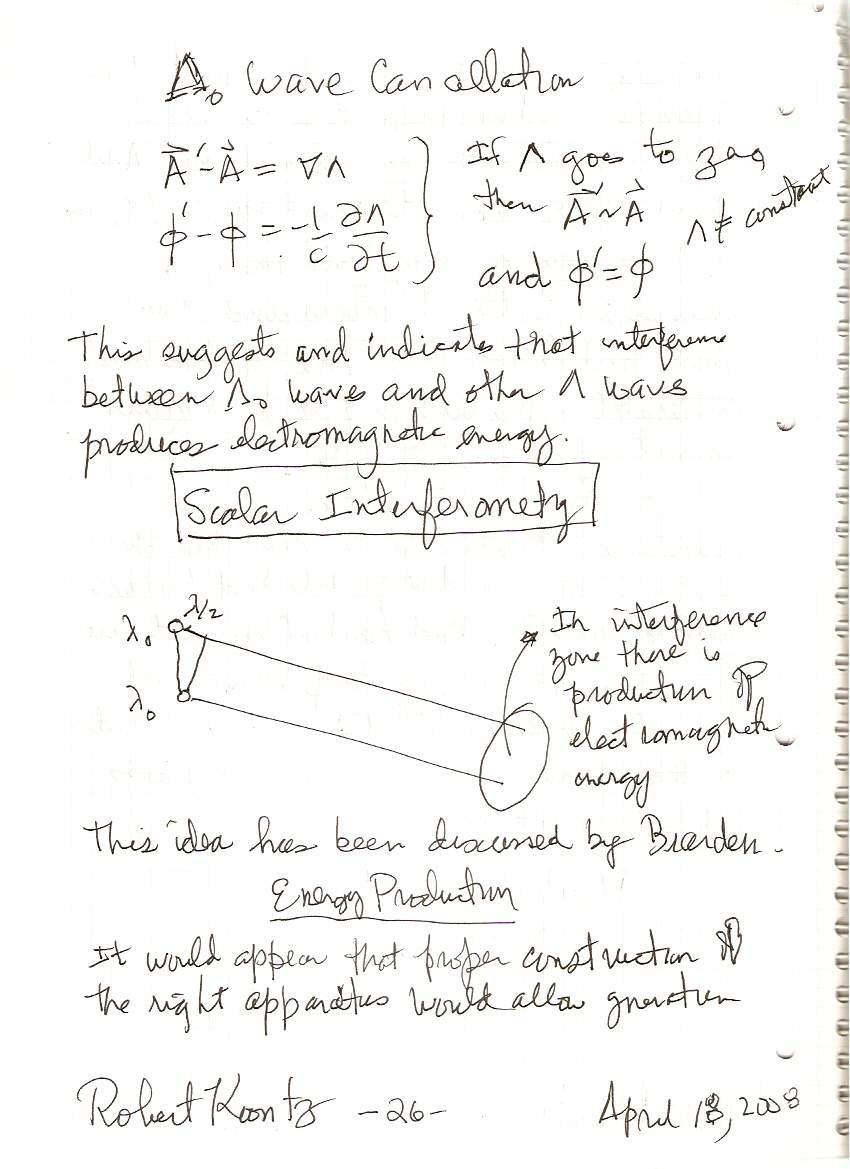 Λ₀ Wave Cancellation
A⃗' - A⃗ = ∇Λ
ϕ' - ϕ = -1/c ∂Λ/∂t
If Λ goes to zero,
then A⃗' ~ A⃗
Λ ≠ constant
and ϕ' = ϕ
This suggests and indicates that interference
between Λ₀ waves and other Λ waves
produces electromagnetic energy.
Scalar Interferometry
λ/2
λ₀
λ₀
In interference
zone there is
production of
electromagnetic
energy
This idea has been discussed by Bearden.
Energy Production
It would appear that proper construction of
the right apparatus would allow generation
Robert Koontz -26- April 18, 2008